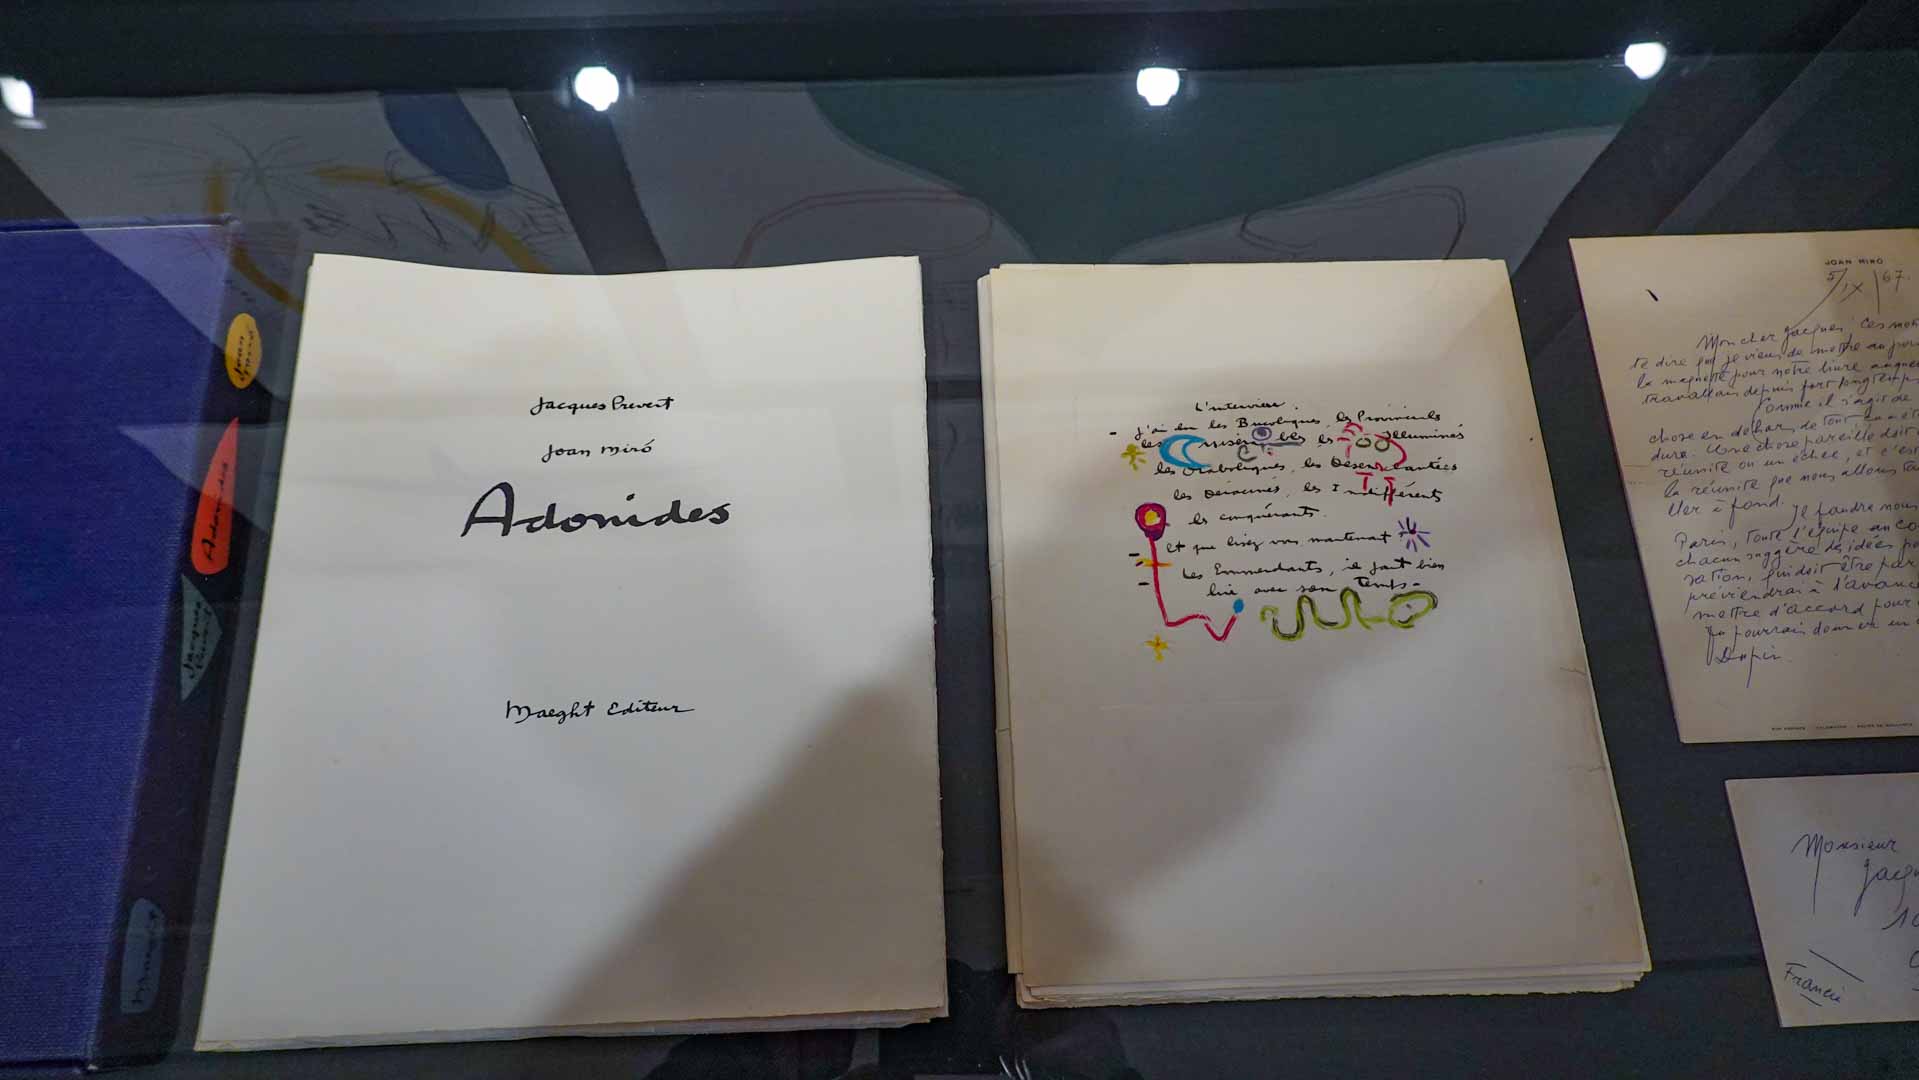 Joan Miró
Adonides
Jacques Prévert
Maeght
Jacques Prevert
Joan Miró
Adonides
Maeght Editeur
L'interview.
- J'ai lu les Bucoliques, les Provinciales
les Misérables les Illuminés
les Diaboliques, les Desenchantées
les Déracinés, les Indifférents
les conquérants.
et que lisez vous maintenant ?
- Les Emmerdants, il faut bien
lire avec son temps -
JOAN MIRÓ
5/IX/67.
Mon cher Jacques, Ces mots
te dire que je viens de mettre au
la maquette pour notre livre auquel
travaillons depuis fort longtemps
Comme il s'agit de
chose en dehors de tout
dure. Une chose pareille doit
réussite ou un échec, et c'est
la réussite que nous allons
ller à fond.
Il faudra nous
Paris, toute l'équipe au
chacun suggère des idées
sation, qui doit être
préviendrai à l'avance
mettre d'accord pour
Tu pourrais donner un
Dupin.
Monsieur
Jacqu
10
France